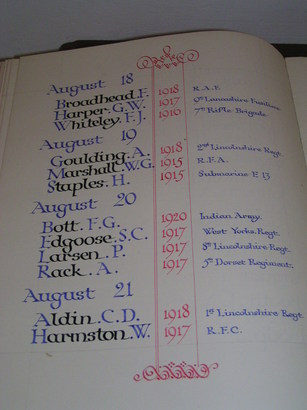 August 18
Broadhead. F. 1918 R.A.F.
Harper. G.W. 1917 9th Lancashire Fusiliers
Whiteley. F.J. 1916 7th Rifle Brigade
August 19
Goulding. A. 1918 2nd Lincolnshire Regt.
Marshall. W.G. 1915 R.F.A.
Staples. H. 1915 Submarine E 13
August 20
Bott. F.G. 1920 Indian Army.
Edgoose. S.C. 1917 West Yorks Regt.
Larsen. P. 1917 8th Lincolnshire Regt.
Rack. A. 1917 5th Dorset Regiment.
August 21
Aldin. C.D. 1918 1st Lincolnshire Regt.
Harmston. W. 1917 R.F.C.